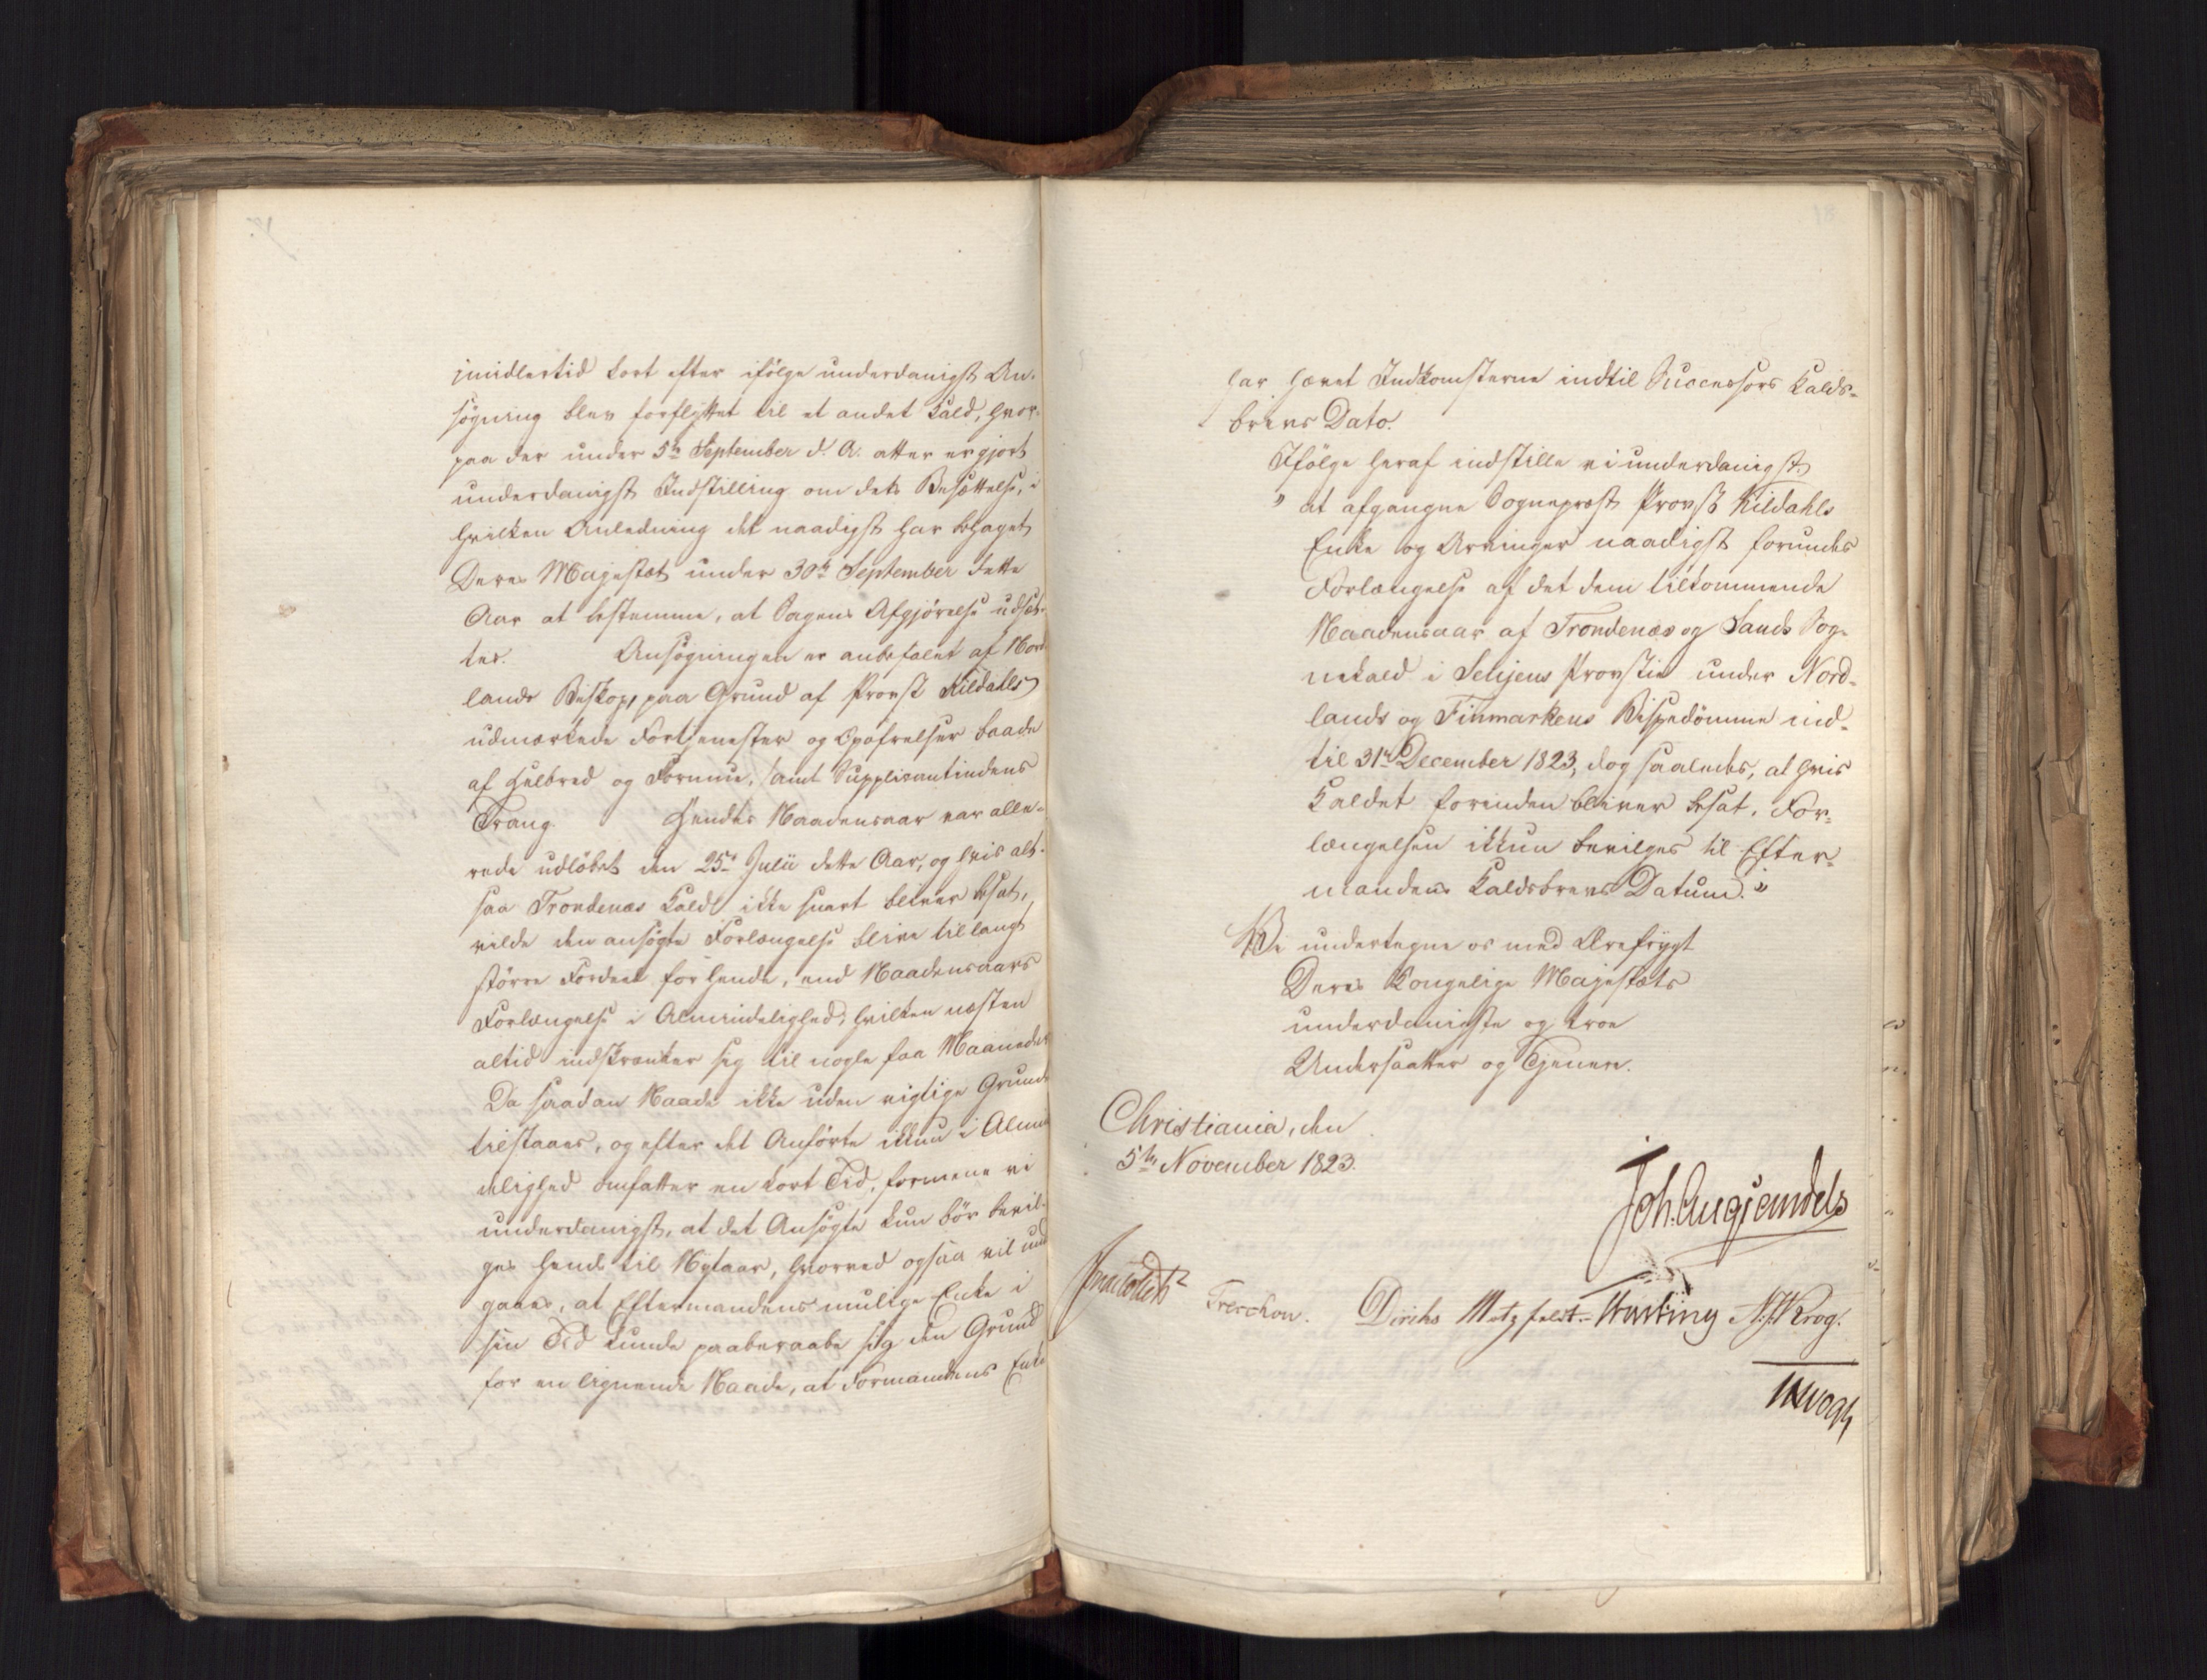 imidlertid kort efter ifölge underdanigst An-
søgning blev forflyttet til et andet Kald, hvor-
paa der under 5te September d. A. atter er gjort
underdanigst Indstilling om dets Besættelse, i
hvilken Anledning det naadigst har behaget
Deres Majestæt under 30te September dette
Aar at bestemme, at Sagens Afgjörelse udsæt-
tes. Ansøgningen er anbefalet af Nord-
lands Biskop, paa Grund af Provst Kildahls
udmærkede Fortjenester og Opofrelser baade
af Helbred og Formue, samt Supplicantindens
Trang. Hendes Naadensaar var alle-
rede udløbet den 25de Julii dette Aar, og hvis alt-
saa Trondenæs Kald ikke snart bliver besat,
vilde den ansøgte Forlængelse blive til langt
större Fordeel for hende, end Naadensaars
Forlængelse i Almindelighed, hvilken næsten
altid indskrænker sig til nogle faa Maaneder
Da saadan Naade ikke uden vigtige Grunde
tilstaaes, og efter det Anførte ikkun i Almin
delighed omfatter en kort Tid, formene vi
underdanigst, at det Ansøgte kun bör bevil-
ges hende til Nytaar, hvorved ogsaa vil und
gaaes, at Eftermandens mulige Enke i
sin Tid kunde paaberaabe sig den Grund
for en lignende Naade, at Formandens Enke
har hævet Indkomsterne indtil Successors Kalds-
brevs Dato.
Ifölge heraf indstille vi underdanigst:
" at afgangne Sognepræst Provst Kildahls
Enke og Arvinger naadigst forundes
Forlængelse af det dem tilkommende
Naadensaar af Trondenæs og Sands Sog-
nekald i Senjens Provstie under Nord-
lands og Finmarkens Bispedömme ind-
til 31te December 1823, dog saaledes, at hvis
Kaldet forinden bliver besat, For-
længelsen ikkun bevilges til Efter-
mandens Kaldsbrevs Datum."
Vi undertegne os med Ærefrygt
Deres Kongelige Majestæts
underdanigste og troe
Undersaatter og Tjenere.
Christiania, den
5te November 1823.
Joh. Aug Sandels
Jonas Collett
Treschow. Diriks Motzfeldt Hasting N. J. Krog.